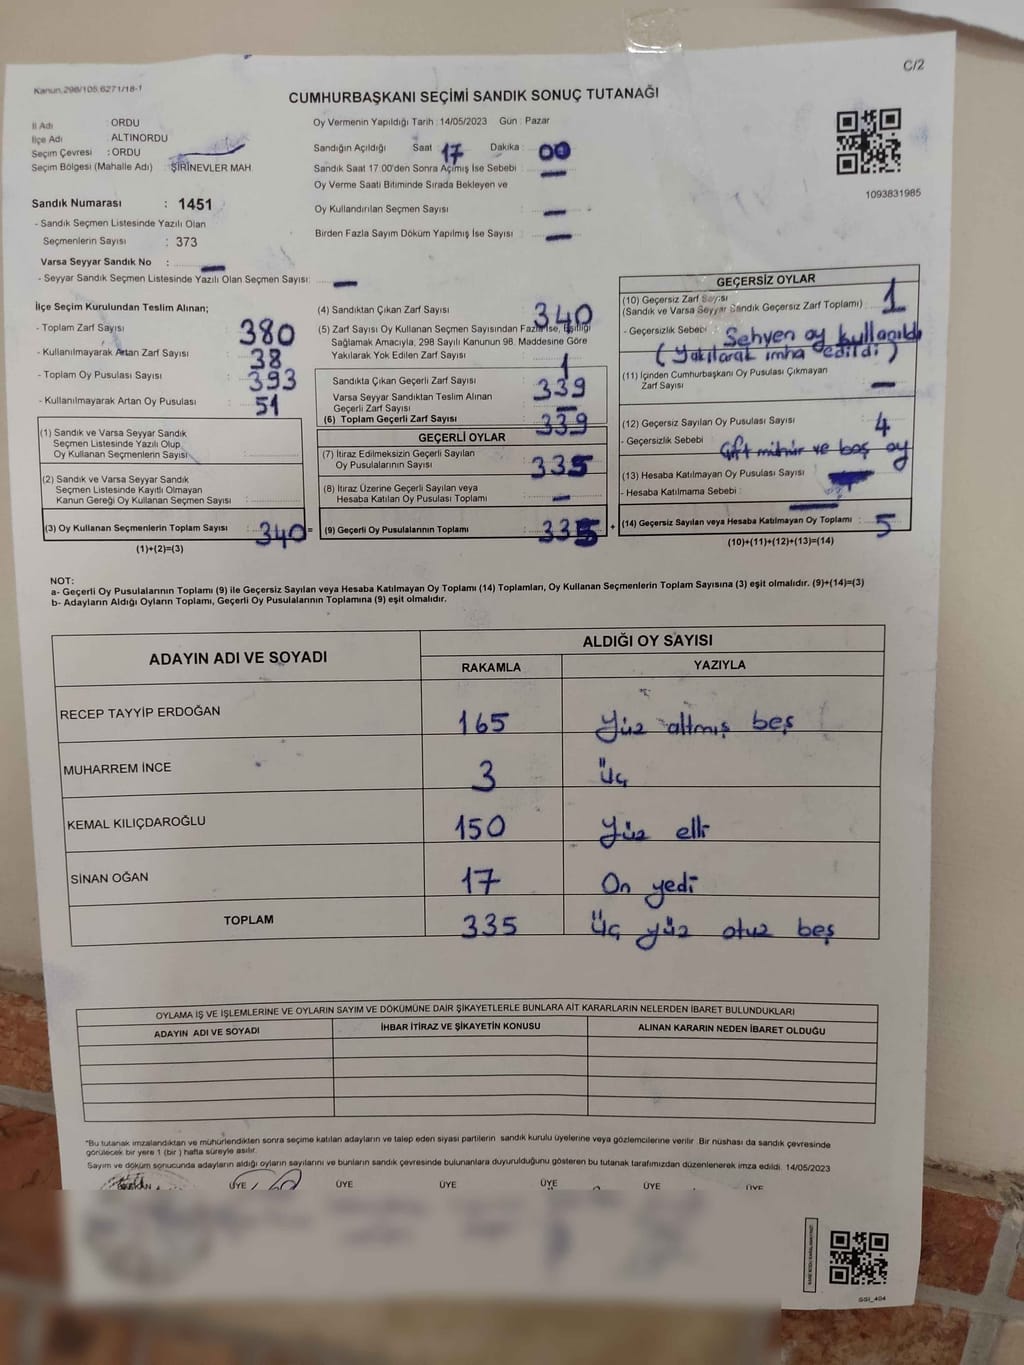 C/2
Kanun.298/105.6271/18-1
CUMHURBAŞKANI SEÇİMİ SANDIK SONUÇ TUTANAĞI
İl Adı : ORDU
İlçe Adı : ALTINORDU
Seçim Çevresi : ORDU
Seçim Bölgesi (Mahalle Adı) : ŞİRİNEVLER MAH.
Sandık Numarası : 1451
- Sandık Seçmen Listesinde Yazılı Olan
Seçmenlerin Sayısı : 373
Varsa Seyyar Sandık No : —
- Seyyar Sandık Seçmen Listesinde Yazılı Olan Seçmen Sayısı: —
Oy Vermenin Yapıldığı Tarih : 14/05/2023 Gün : Pazar
Sandığın Açıldığı Saat : 17 Dakika : 00
Sandık Saat 17.00'den Sonra Açılmış İse Sebebi : —
Oy Verme Saati Bitiminde Sırada Bekleyen ve
Oy Kullandırılan Seçmen Sayısı : —
Birden Fazla Sayım Döküm Yapılmış İse Sayısı : —
1093831985
İlçe Seçim Kurulundan Teslim Alınan;
- Toplam Zarf Sayısı : 380
- Kullanılmayarak Artan Zarf Sayısı : 38
- Toplam Oy Pusulası Sayısı : 393
- Kullanılmayarak Artan Oy Pusulası : 51
(1) Sandık ve Varsa Seyyar Sandık
Seçmen Listesinde Yazılı Olup,
Oy Kullanan Seçmenlerin Sayısı :
(2) Sandık ve Varsa Seyyar Sandık
Seçmen Listesinde Kayıtlı Olmayan
Kanun Gereği Oy Kullanan Seçmen Sayısı :
(3) Oy Kullanan Seçmenlerin Toplam Sayısı : 340 =
(1)+(2)=(3)
(4) Sandıktan Çıkan Zarf Sayısı : 340
(5) Zarf Sayısı Oy Kullanan Seçmen Sayısından Fazla İse, Eşitliği
Sağlamak Amacıyla, 298 Sayılı Kanunun 98. Maddesine Göre
Yakılarak Yok Edilen Zarf Sayısı : 1
Sandıkta Çıkan Geçerli Zarf Sayısı : 339
Varsa Seyyar Sandıktan Teslim Alınan
Geçerli Zarf Sayısı : —
(6) Toplam Geçerli Zarf Sayısı : 339
GEÇERLİ OYLAR
(7) İtiraz Edilmeksizin Geçerli Sayılan
Oy Pusulalarının Sayısı : 335
(8) İtiraz Üzerine Geçerli Sayılan veya
Hesaba Katılan Oy Pusulası Toplamı : —
(9) Geçerli Oy Pusulalarının Toplamı : 335 +
GEÇERSİZ OYLAR
(10) Geçersiz Zarf Sayısı
(Sandık ve Varsa Seyyar Sandık Geçersiz Zarf Toplamı) : 1
- Geçersizlik Sebebi : Sehven oy kullanıldı
(Yakılarak imha edildi)
(11) İçinden Cumhurbaşkanı Oy Pusulası Çıkmayan
Zarf Sayısı : —
(12) Geçersiz Sayılan Oy Pusulası Sayısı : 4
- Geçersizlik Sebebi : Çift mühür ve boş oy
(13) Hesaba Katılmayan Oy Pusulası Sayısı :
- Hesaba Katılmama Sebebi : —
(14) Geçersiz Sayılan veya Hesaba Katılmayan Oy Toplamı : 5
(10)+(11)+(12)+(13)=(14)
NOT:
a- Geçerli Oy Pusulalarının Toplamı (9) ile Geçersiz Sayılan veya Hesaba Katılmayan Oy Toplamı (14) Toplamları, Oy Kullanan Seçmenlerin Toplam Sayısına (3) eşit olmalıdır. (9)+(14)=(3)
b- Adayların Aldığı Oyların Toplamı, Geçerli Oy Pusulalarının Toplamına (9) eşit olmalıdır.
ADAYIN ADI VE SOYADI ALDIĞI OY SAYISI
RAKAMLA YAZIYLA
RECEP TAYYİP ERDOĞAN 165 Yüz altmış beş
MUHARREM İNCE 3 Üç
KEMAL KILIÇDAROĞLU 150 Yüz elli
SİNAN OĞAN 17 On yedi
TOPLAM 335 Üç yüz otuz beş
OYLAMA İŞ VE İŞLEMLERİNE VE OYLARIN SAYIM VE DÖKÜMÜNE DAİR ŞİKAYETLERLE BUNLARA AİT KARARLARIN NELERDEN İBARET BULUNDUKLARI
ADAYIN ADI VE SOYADI İHBAR İTİRAZ VE ŞİKAYETİN KONUSU ALINAN KARARIN NEDEN İBARET OLDUĞU
*Bu tutanak imzalandıktan ve mühürlendikten sonra seçime katılan adayların ve talep eden siyasi partilerin sandık kurulu üyelerine veya gözlemcilerine verilir. Bir nüshası da sandık çevresinde
görülecek bir yere 1 (bir) hafta süreyle asılır.
Sayım ve döküm sonucunda adayların aldığı oyların sayılarını ve bunların sandık çevresinde bulunanlara duyurulduğunu gösteren bu tutanak tarafımızdan düzenlenerek imza edildi. 14/05/2023
BAŞKAN ÜYE ÜYE ÜYE ÜYE ÜYE ÜYE
GSI_404